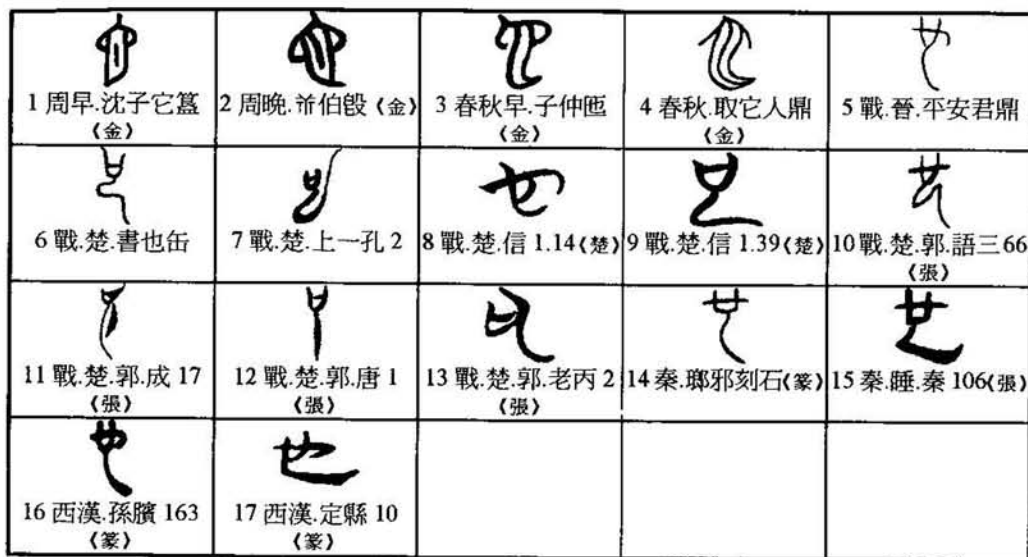 1 周早.沈子它簋
《金》
2 周晚.芇伯𣪘《金》
3 春秋早.子仲匜
《金》
4 春秋.取它人鼎
《金》
5 戰.晉.平安君鼎
6 戰.楚.書也缶
7 戰.楚.上一孔 2
8 戰.楚.信 1.14《楚》
9 戰.楚.信 1.39《楚》
10 戰.楚.郭.語三 66
《張》
11 戰.楚.郭.成 17
《張》
12 戰.楚.郭.唐 1
《張》
13 戰.楚.郭.老丙 2
《張》
14 秦.瑯邪刻石《篆》
15 秦.睡.秦 106《張》
16 西漢.孫臏 163
《篆》
17 西漢.定縣 10
《篆》